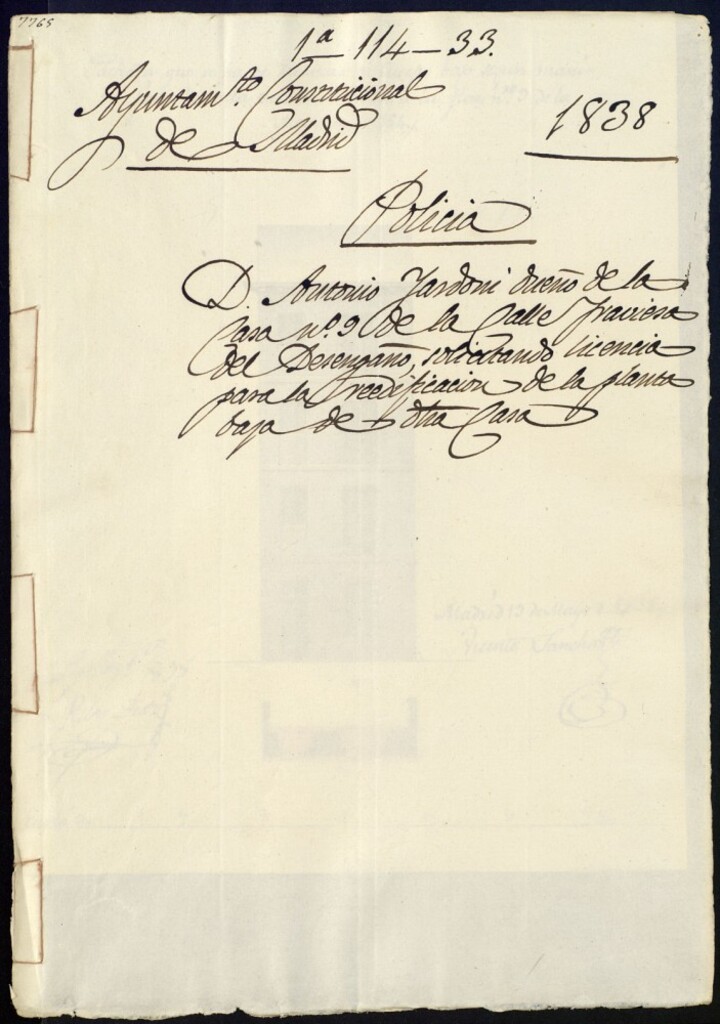 7765
1ª 114-33.
Ayuntam.to Constitucional
de Madrid
1838
Policia
D. Antonio Jardoni dueño de la
Casa nº. 9 de la Calle Traviesa
del Desengaño, solicitando licencia
para la reedificacion de la planta
baja de dha Casa
Madrid 13 de Mayo
Vicente